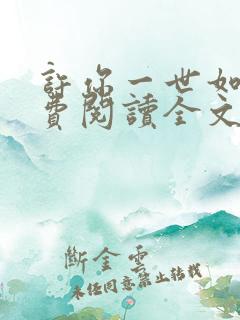 許你一世如
費閱讀全文
斷金雲
未經同意禁止转载